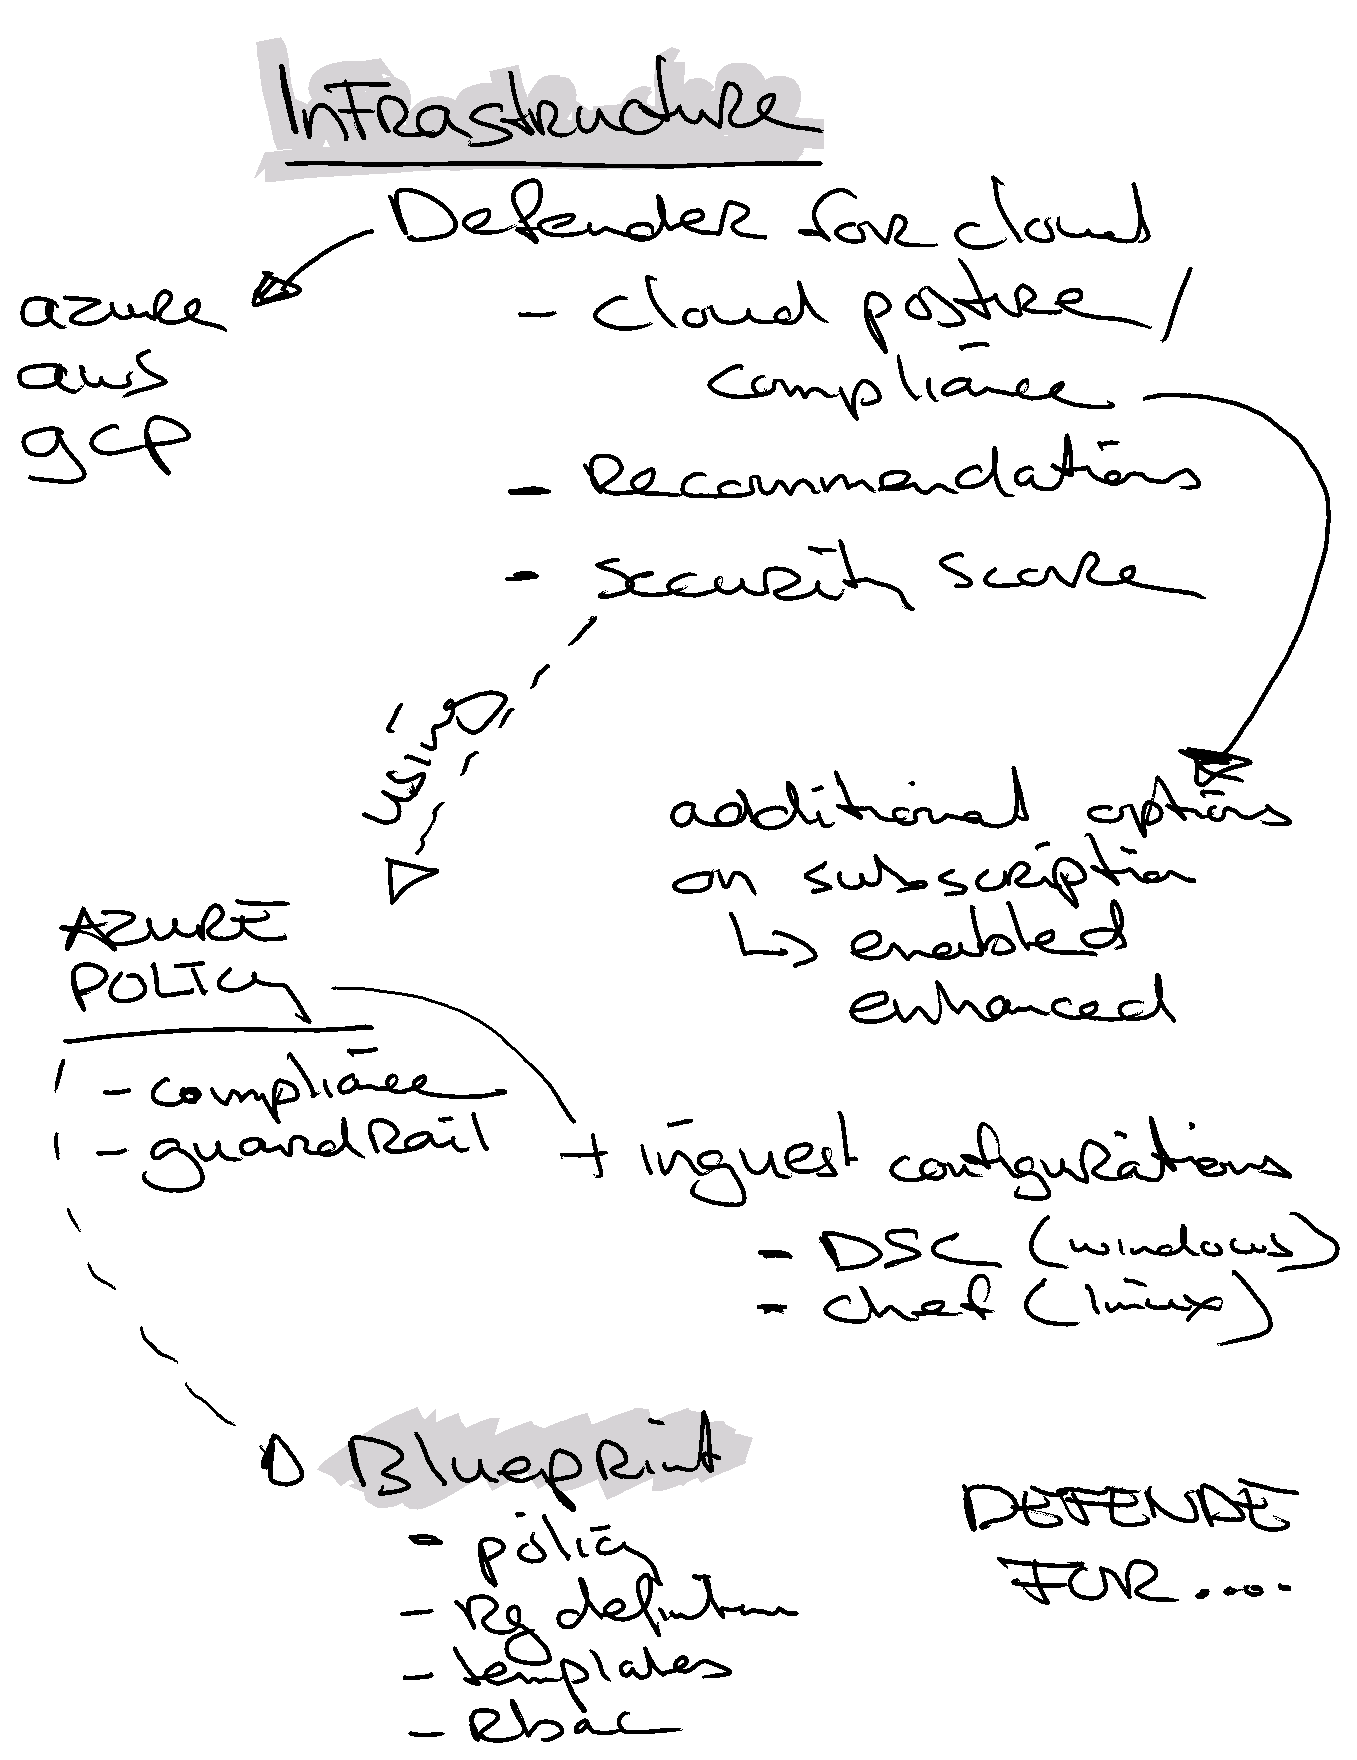 Infrastructure
Defender for cloud
azure
aws
gcp
- cloud posture /
compliance
- Recommendations
- security score
using
additional options
on subscription
↳ enabled
enhanced
AZURE
POLICY
- compliance
- guardRail
+ inguest configurations
- DSC (windows)
- chef (linux)
Blueprint
- policy
- Rg definition
- templates
- Rbac
DEFENDE
FOR....